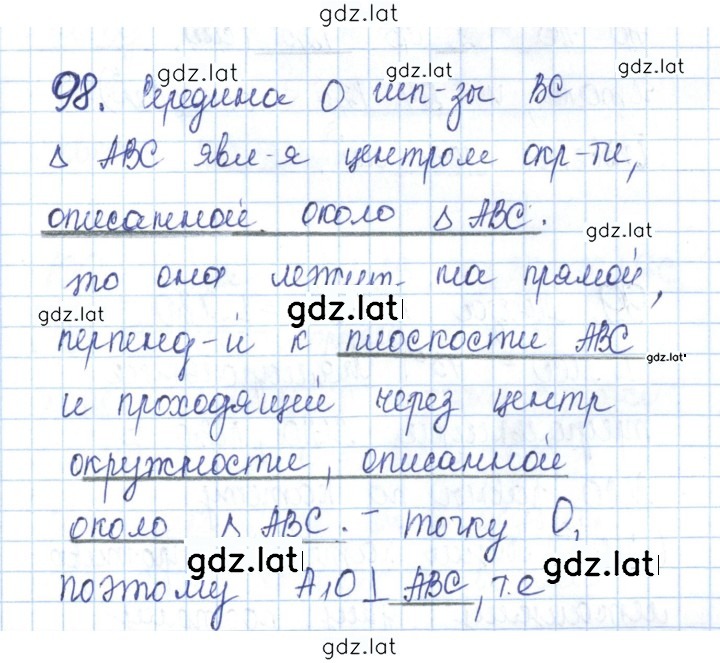 gdz.lat
gdz.lat gdz.lat gdz.lat
98. Середина O гип-зы BC
Δ ABC явл-я центром окр-ти,
описанной около Δ ABC.
gdz.lat
то она лежит на прямой,
gdz.lat gdz.lat
перпенд-й к плоскости ABC
gdz.lat
и проходящей через центр
окружности, описанной
около Δ ABC. – точку O,
gdz.lat gdz.lat
поэтому A₁O ⊥ ABC, т.е
gdz.lat